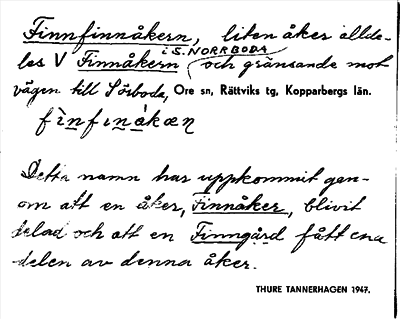 Finnfinnåkern, liten åker allde-
i S. NORRBODA
les V Finnåkern och gränsande mot
vägen till Sörboda, Ore sn, Rättviks tg, Kopparbergs län.
fìnfɩnåkæn
Detta namn har uppkommit gen-
om att en åker, Finnåker, blivit
delad och att en Finngård fått ena
delen av denna åker.
THURE TANNERHAGEN 1947.